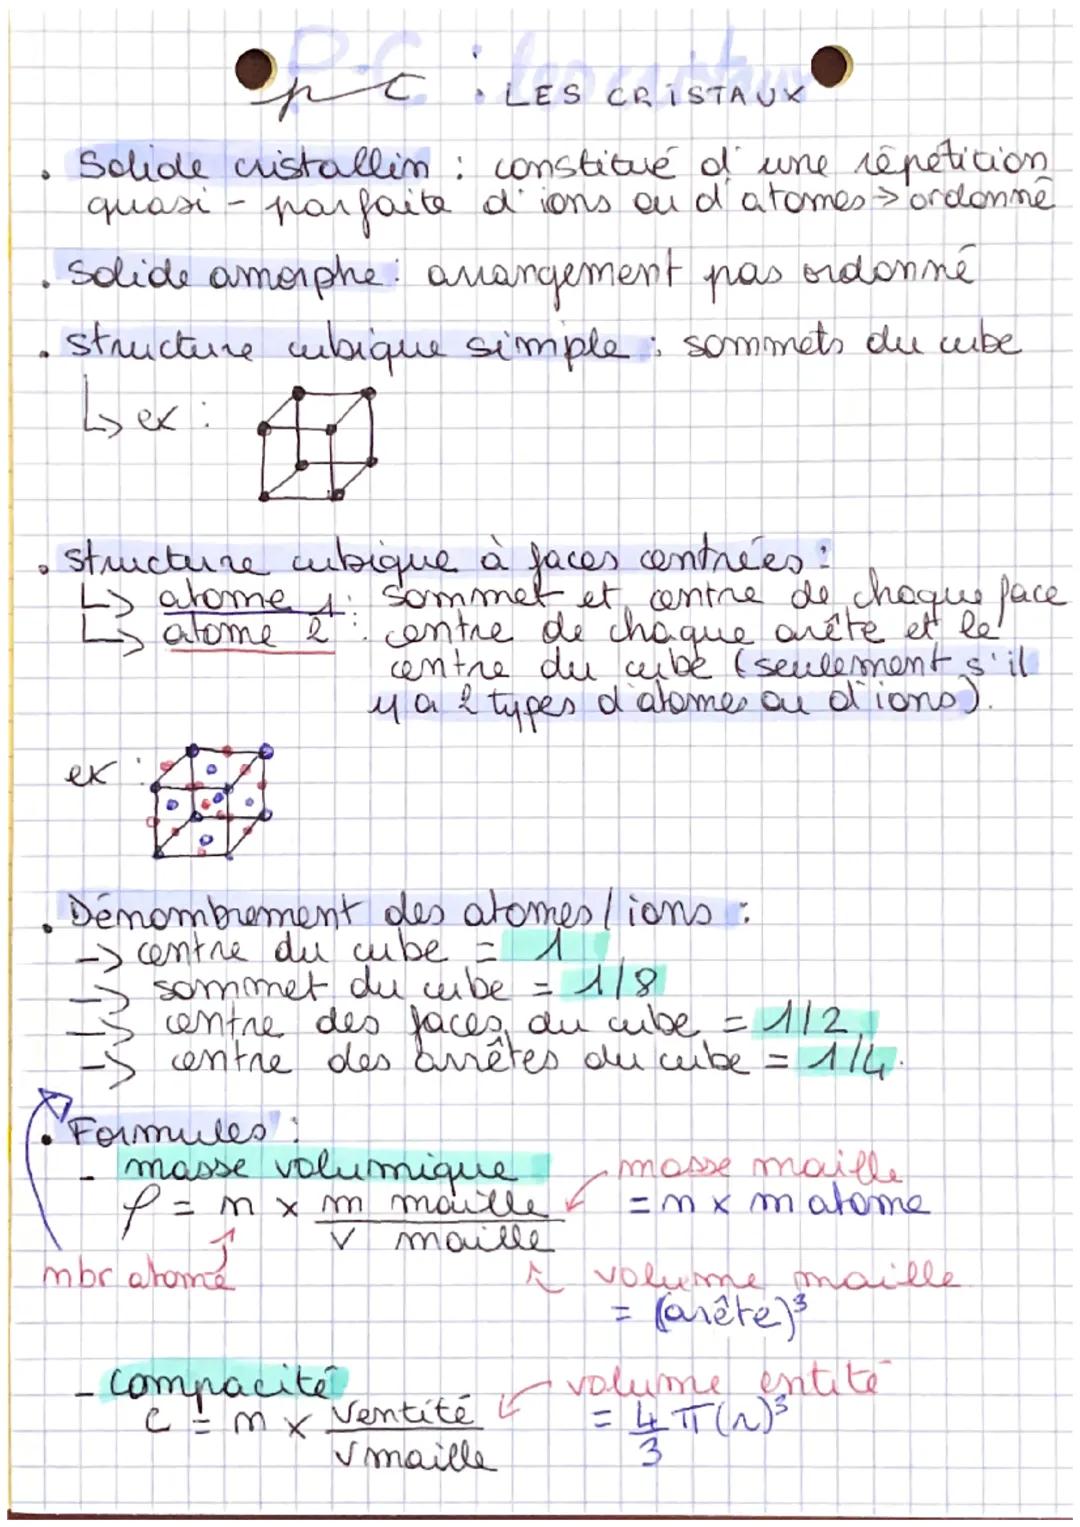 PC : LES CRISTAUX
. Solide cristallin : constitué d'une répétition
quasi - parfaite d'ions ou d'atomes -> ordonné
. Solide amorphe : arrangement pas ordonné
. structure cubique simple : sommets du cube
↳ ex :
. structure cubique à faces centrées :
↳ atome 1 : sommet et centre de chaque face
↳ atome 2 : centre de chaque arête et le
centre du cube (seulement s'il
y a 2 types d'atomes ou d'ions).
ex :
. Dénombrement des atomes / ions :
-> centre du cube = 1
-> sommet du cube = 1/8
-> centre des faces du cube = 1/2
-> centre des arrêtes du cube = 1/4.
. Formules :
- masse volumique
masse maille
ρ = n x m maille / V maille
= n x m atome
nbr atome
volume maille
= (arête)³
- compacité
volume entité
C = n x Ventité / Vmaille
= 4/3 π (r)³